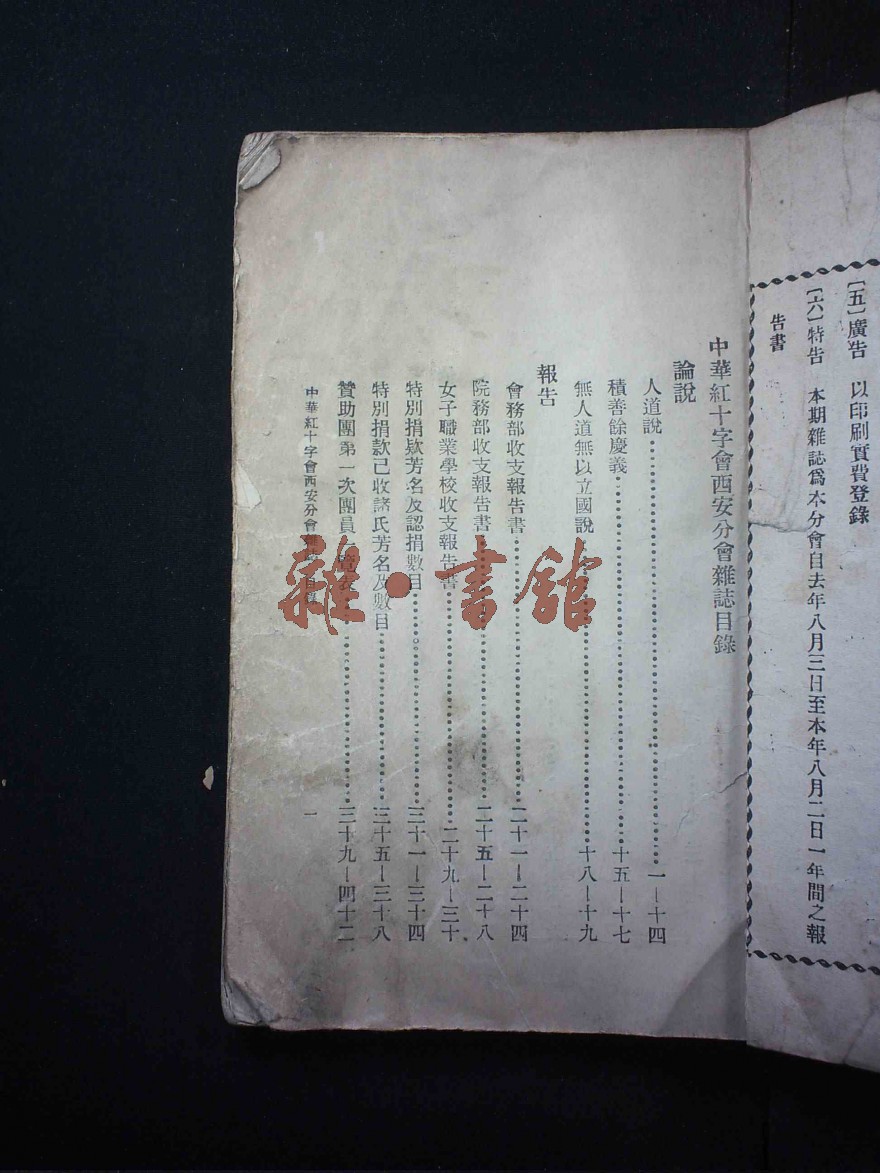 〔五〕廣告　以印刷實費登錄
〔六〕特告　本期雜誌爲本分會自去年八月三日至本年八月二日一年間之報
告書
中華紅十字會西安分會雜誌目錄
論説
人道說…一—十四
積善餘慶義…十五—十七
無人道無以立國說…十八—十九
報告
會務部收支報告書…二十一—二十四
院務部收支報告書…二十五—二十八
女子職業學校收支報告書…二十九—三十
特別捐欵芳名及認捐數目…三十一—三十四
特別捐款已收諸氏芳名及數目…三十五—三十八
贊助團第一次團員一覽表…三十九—四十二
中華紅十字會西安分會雜誌目錄
一
雜·書館